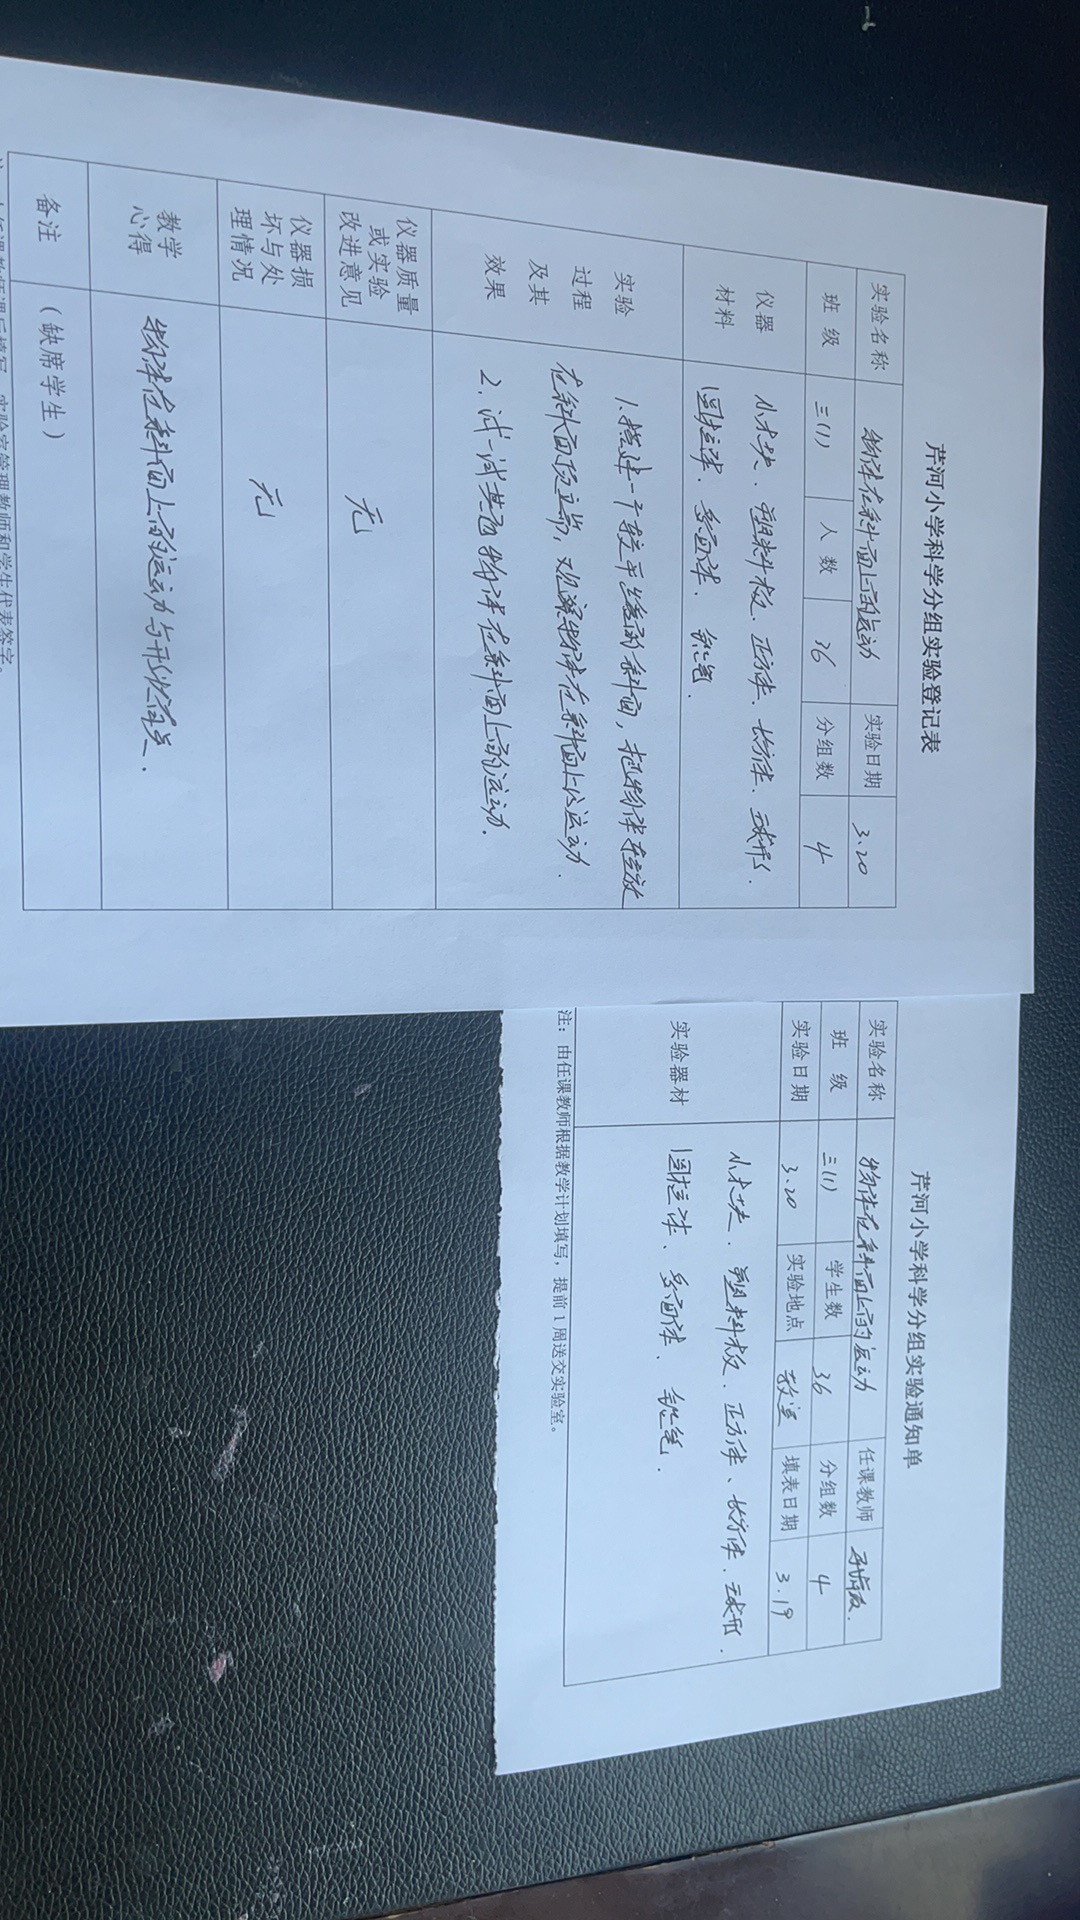 芹河小学科学分组实验登记表
实验名称 物体在斜面上的运动 实验日期 3.20
班 级 三(1) 人 数 36 分组数 4
仪器材料 小木块、塑料板、正方体、长方体、球形、
圆柱体、多面体、铅笔.
实验过程及其效果 1.搭建一个较平缓的斜面，把物体轻放
在斜面顶端，观察物体在斜面上的运动.
2、试一试其它物体在斜面上的运动.
仪器质量或实验改进意见 无
仪器损坏与处理情况 无
教学心得 物体在斜面上的运动与形状有关.
备注 （缺席学生）
实验室管理教师和学生代表签字。
芹河小学科学分组实验通知单
实验名称 物体在斜面上的运动 任课教师
班 级 三(1) 学生数 36 分组数 4
实验日期 3.20 实验地点 教室 填表日期 3.19
实验器材 小木块、塑料板、正方体、长方体、球形、
圆柱体、多面体、铅笔.
注：由任课教师根据教学计划填写，提前1周送交实验室。